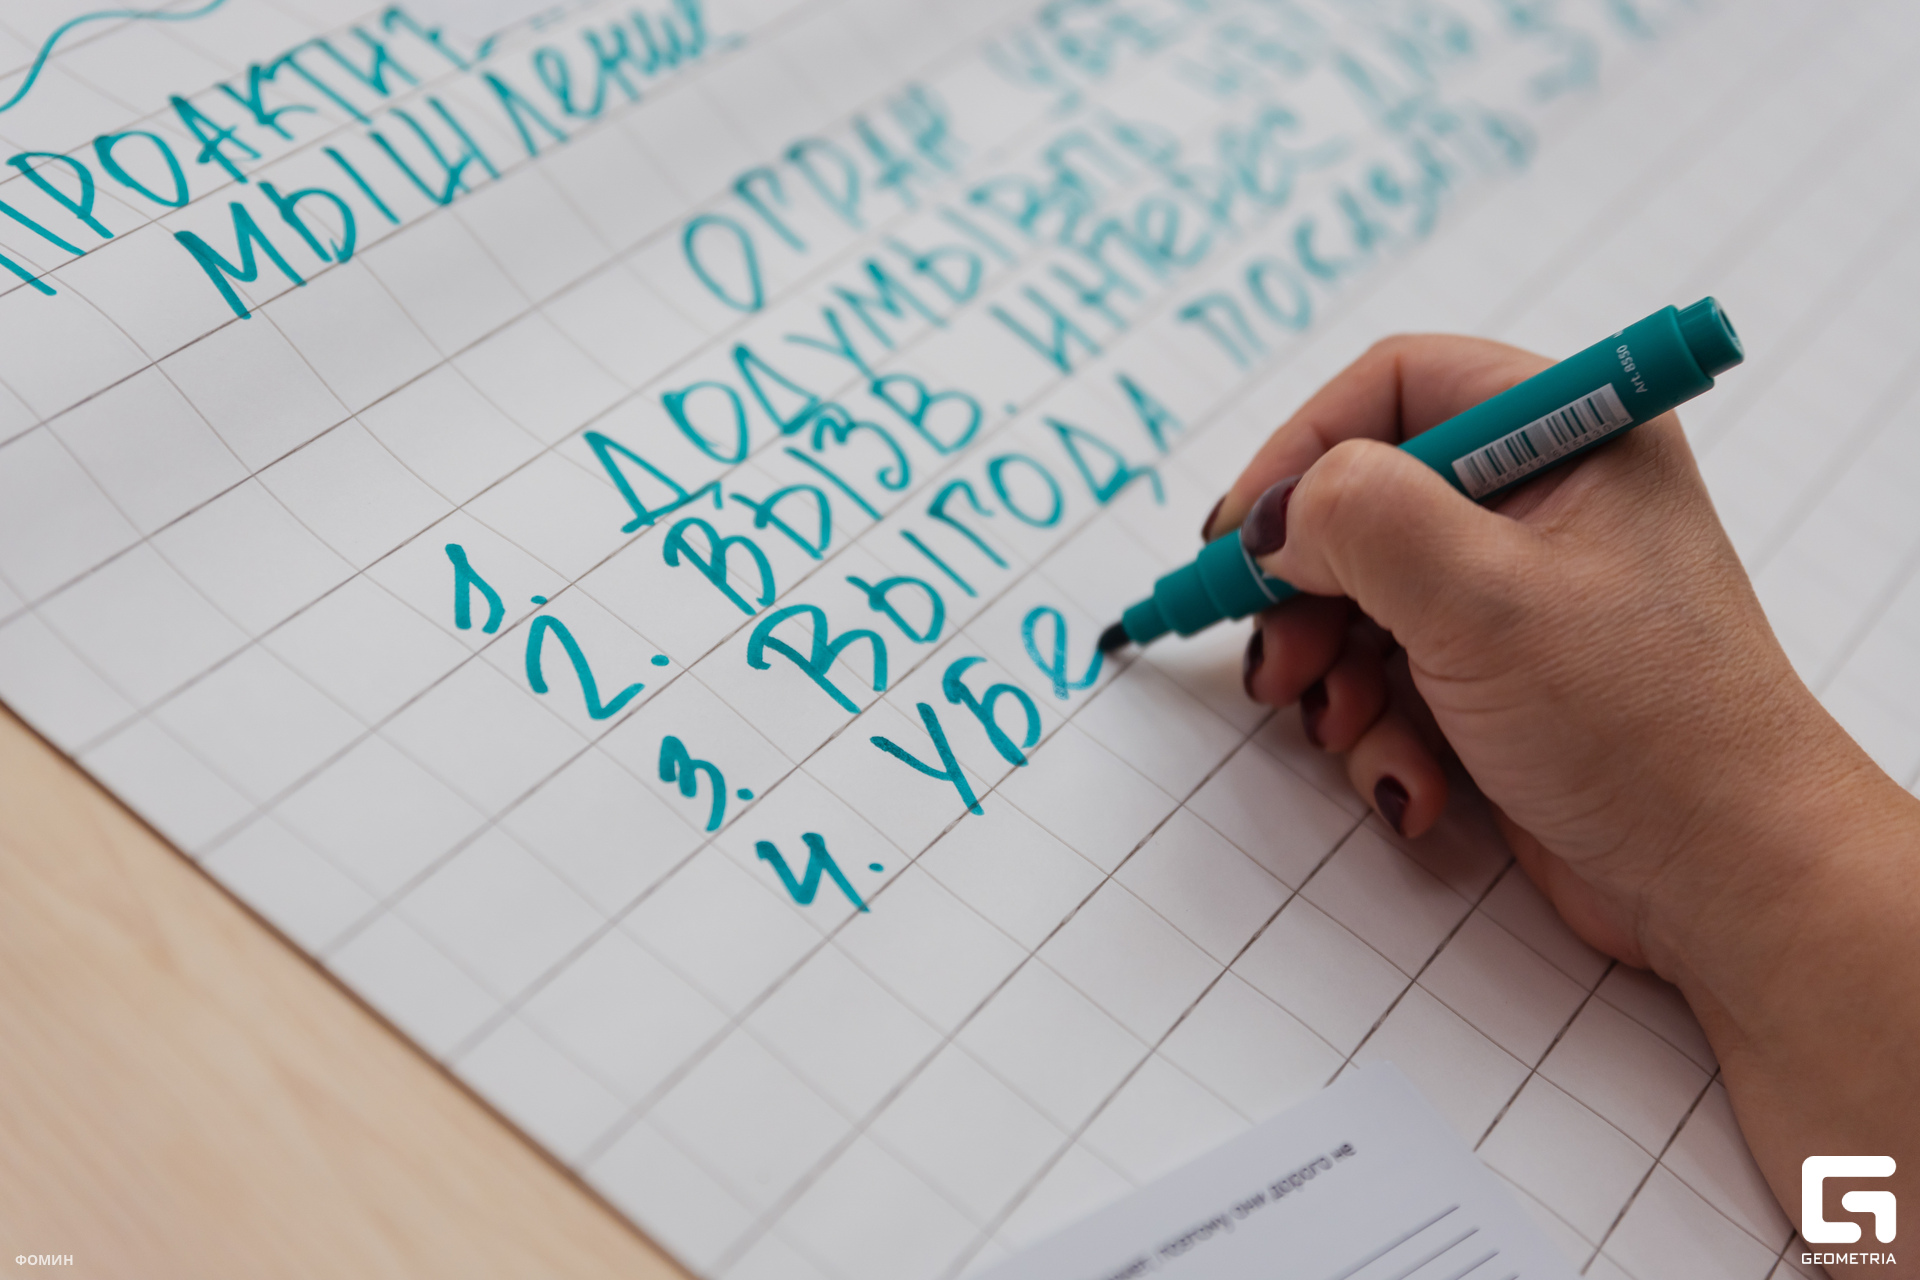 ПРОАКТИ
МЫШЛЕНИЕ
ОГРАН УБЕ
1. ДОДУМЫВАТЬ
2. ВЫЗВ. ИНТЕРЕС
3. ВЫГОДА ПОКАЗАТЬ
4. УБЕ
Art. 8550
поэтому они дорого не
ФОМИН
GEOMETRIA